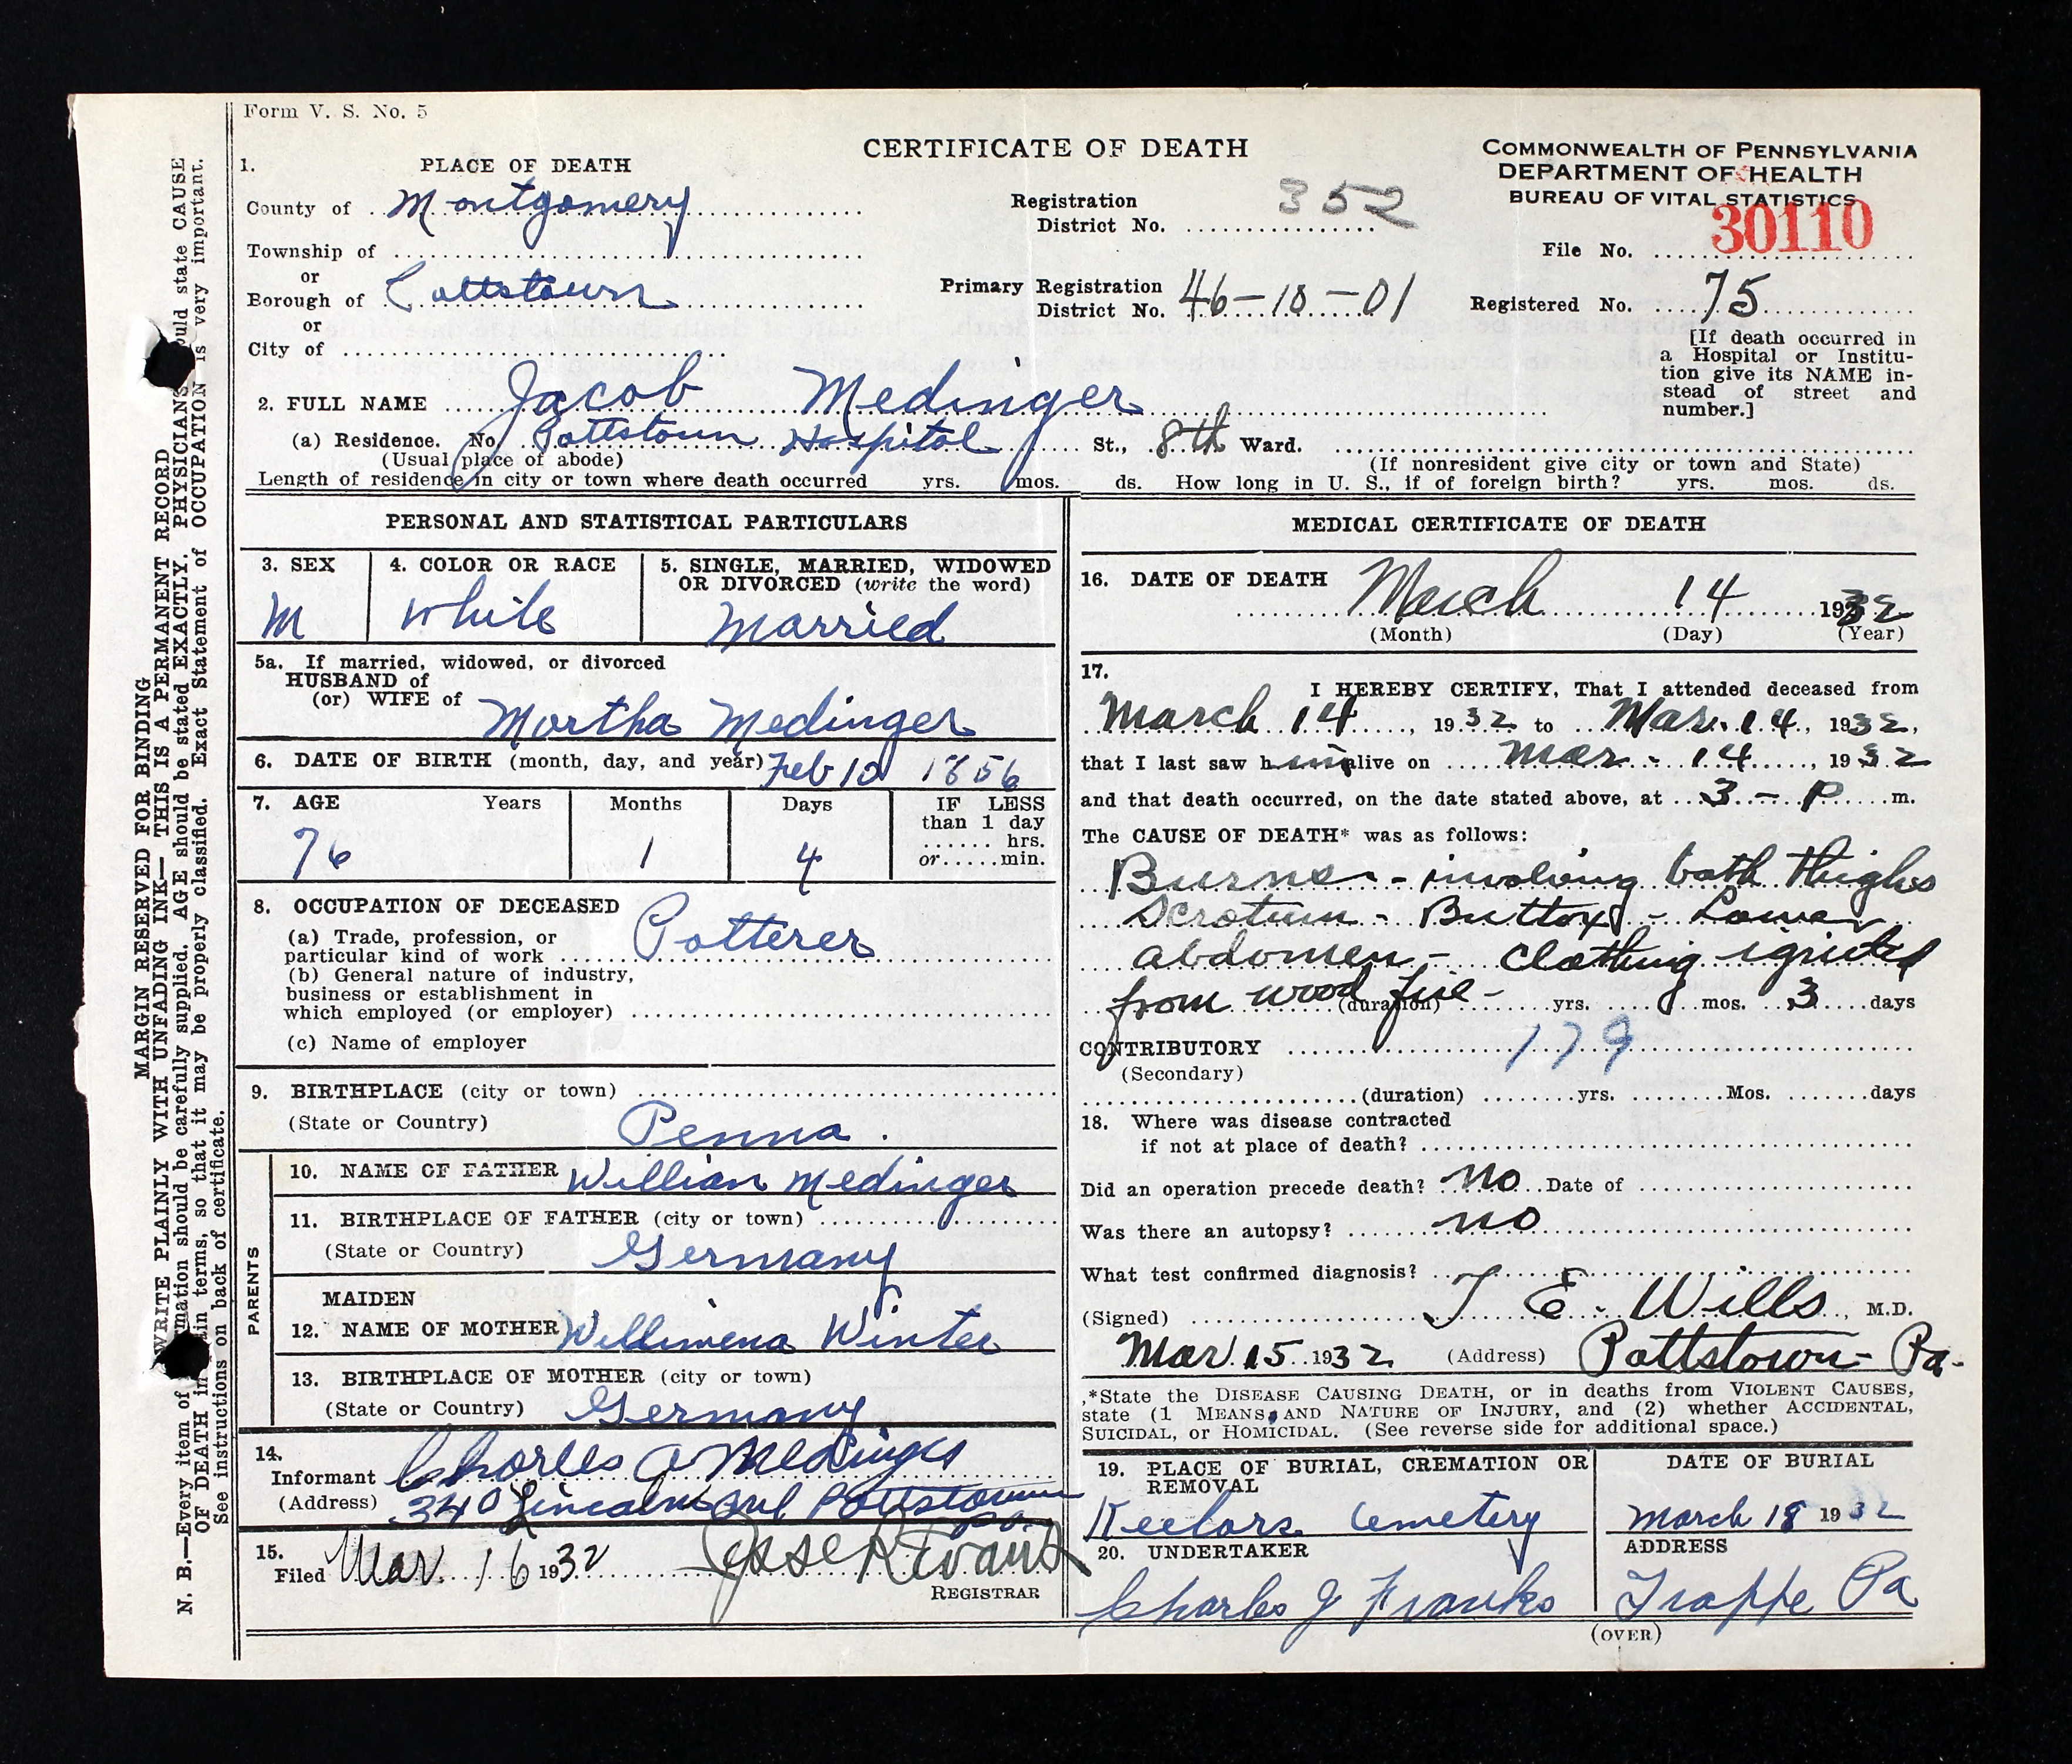 Form V. S. No. 5
CERTIFICATE OF DEATH
COMMONWEALTH OF PENNSYLVANIA
DEPARTMENT OF HEALTH
BUREAU OF VITAL STATISTICS
1. PLACE OF DEATH
County of Montgomery
Township of
or
Borough of Pottstown
or
City of
Registration
District No. 352
Primary Registration
District No. 46-10-01
File No. 30110
Registered No. 75
[If death occurred in
a Hospital or Institu-
tion give its NAME in-
stead of street and
number.]
2. FULL NAME Jacob Medinger
(a) Residence. No. Pottstown Hospital St., 8th Ward.
(Usual place of abode) (If nonresident give city or town and State)
Length of residence in city or town where death occurred yrs. mos. ds. How long in U. S., if of foreign birth? yrs. mos. ds.
PERSONAL AND STATISTICAL PARTICULARS
3. SEX
M
4. COLOR OR RACE
White
5. SINGLE, MARRIED, WIDOWED
OR DIVORCED (write the word)
Married
5a. If married, widowed, or divorced
HUSBAND of
(or) WIFE of Martha Medinger
6. DATE OF BIRTH (month, day, and year) Feb 10 1856
7. AGE Years Months Days
76 1 4
IF LESS
than 1 day
...... hrs.
or ..... min.
8. OCCUPATION OF DECEASED
(a) Trade, profession, or
particular kind of work Potterer
(b) General nature of industry,
business or establishment in
which employed (or employer)
(c) Name of employer
9. BIRTHPLACE (city or town)
(State or Country) Penna.
PARENTS
10. NAME OF FATHER Willian Medinger
11. BIRTHPLACE OF FATHER (city or town)
(State or Country) Germany
MAIDEN
12. NAME OF MOTHER Willimena Winter
13. BIRTHPLACE OF MOTHER (city or town)
(State or Country) Germany
14.
Informant Charles A Medinger
(Address) 340 Lincoln Ave Pottstown
Pa.
15.
Filed Mar. 16 1932 Jesse R Evans
REGISTRAR
MEDICAL CERTIFICATE OF DEATH
16. DATE OF DEATH
March 14 1932
(Month) (Day) (Year)
17.
I HEREBY CERTIFY, That I attended deceased from
March 14, 1932 to Mar. 14, 1932,
that I last saw him alive on Mar. 14, 1932
and that death occurred, on the date stated above, at 3 - P m.
The CAUSE OF DEATH* was as follows:
Burns - involving both thighs
Scrotum - Buttox - Lower
abdomen - Clothing ignited
from wood fire - (duration) yrs. mos. 3 days
CONTRIBUTORY 179
(Secondary)
(duration) yrs. Mos. days
18. Where was disease contracted
if not at place of death?
Did an operation precede death? no Date of
Was there an autopsy? no
What test confirmed diagnosis?
(Signed) T E. Wills, M.D.
Mar. 15. 1932 (Address) Pottstown - Pa.
*State the DISEASE CAUSING DEATH, or in deaths from VIOLENT CAUSES,
state (1 MEANS AND NATURE OF INJURY, and (2) whether ACCIDENTAL,
SUICIDAL, or HOMICIDAL. (See reverse side for additional space.)
19. PLACE OF BURIAL, CREMATION OR
REMOVAL
Keelors Cemetery
DATE OF BURIAL
March 18 1932
20. UNDERTAKER
Charles J Franks
ADDRESS
Trappe Pa
(OVER)
MARGIN RESERVED FOR BINDING
WRITE PLAINLY WITH UNFADING INK—THIS IS A PERMANENT RECORD
N. B.—Every item of information should be carefully supplied. AGE should be stated EXACTLY. PHYSICIANS should state CAUSE
OF DEATH in plain terms, so that it may be properly classified. Exact Statement of OCCUPATION is very important.
See instructions on back of certificate.